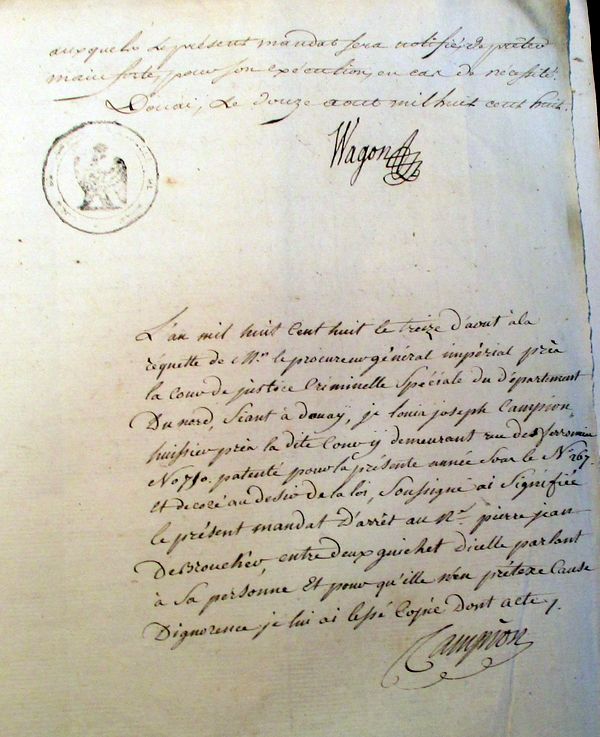 auxquels le présent mandat sera notifié, de prêter
main forte, pour son exécution, en cas de nécessité.
Douai, le douze aout mil huit cent huit.
Wagon
L'an mil huit Cent huit le treize d'aout à la
réquette de Mr. le procureur général impérial près
la Cour de justice Criminelle Spéciale du département
Du nord, Séant à douay, je louis joseph Campion
huissier près la dite Cour ÿ demeurant rue des ferronnier
No 710. patenté pour la présente année Sous le No 267.
et decoré au desir de la loi, Soussigné ai Signifiée
le présent mandat D'arrêt au Né. pierre jean
DeBrouchér, entre deux guichet d'icelle parlant
à Sa personne Et pour qu'ille n'en prétexe Cause
D'ignorence je lui ai lessé Copie Dont acte.
Campion